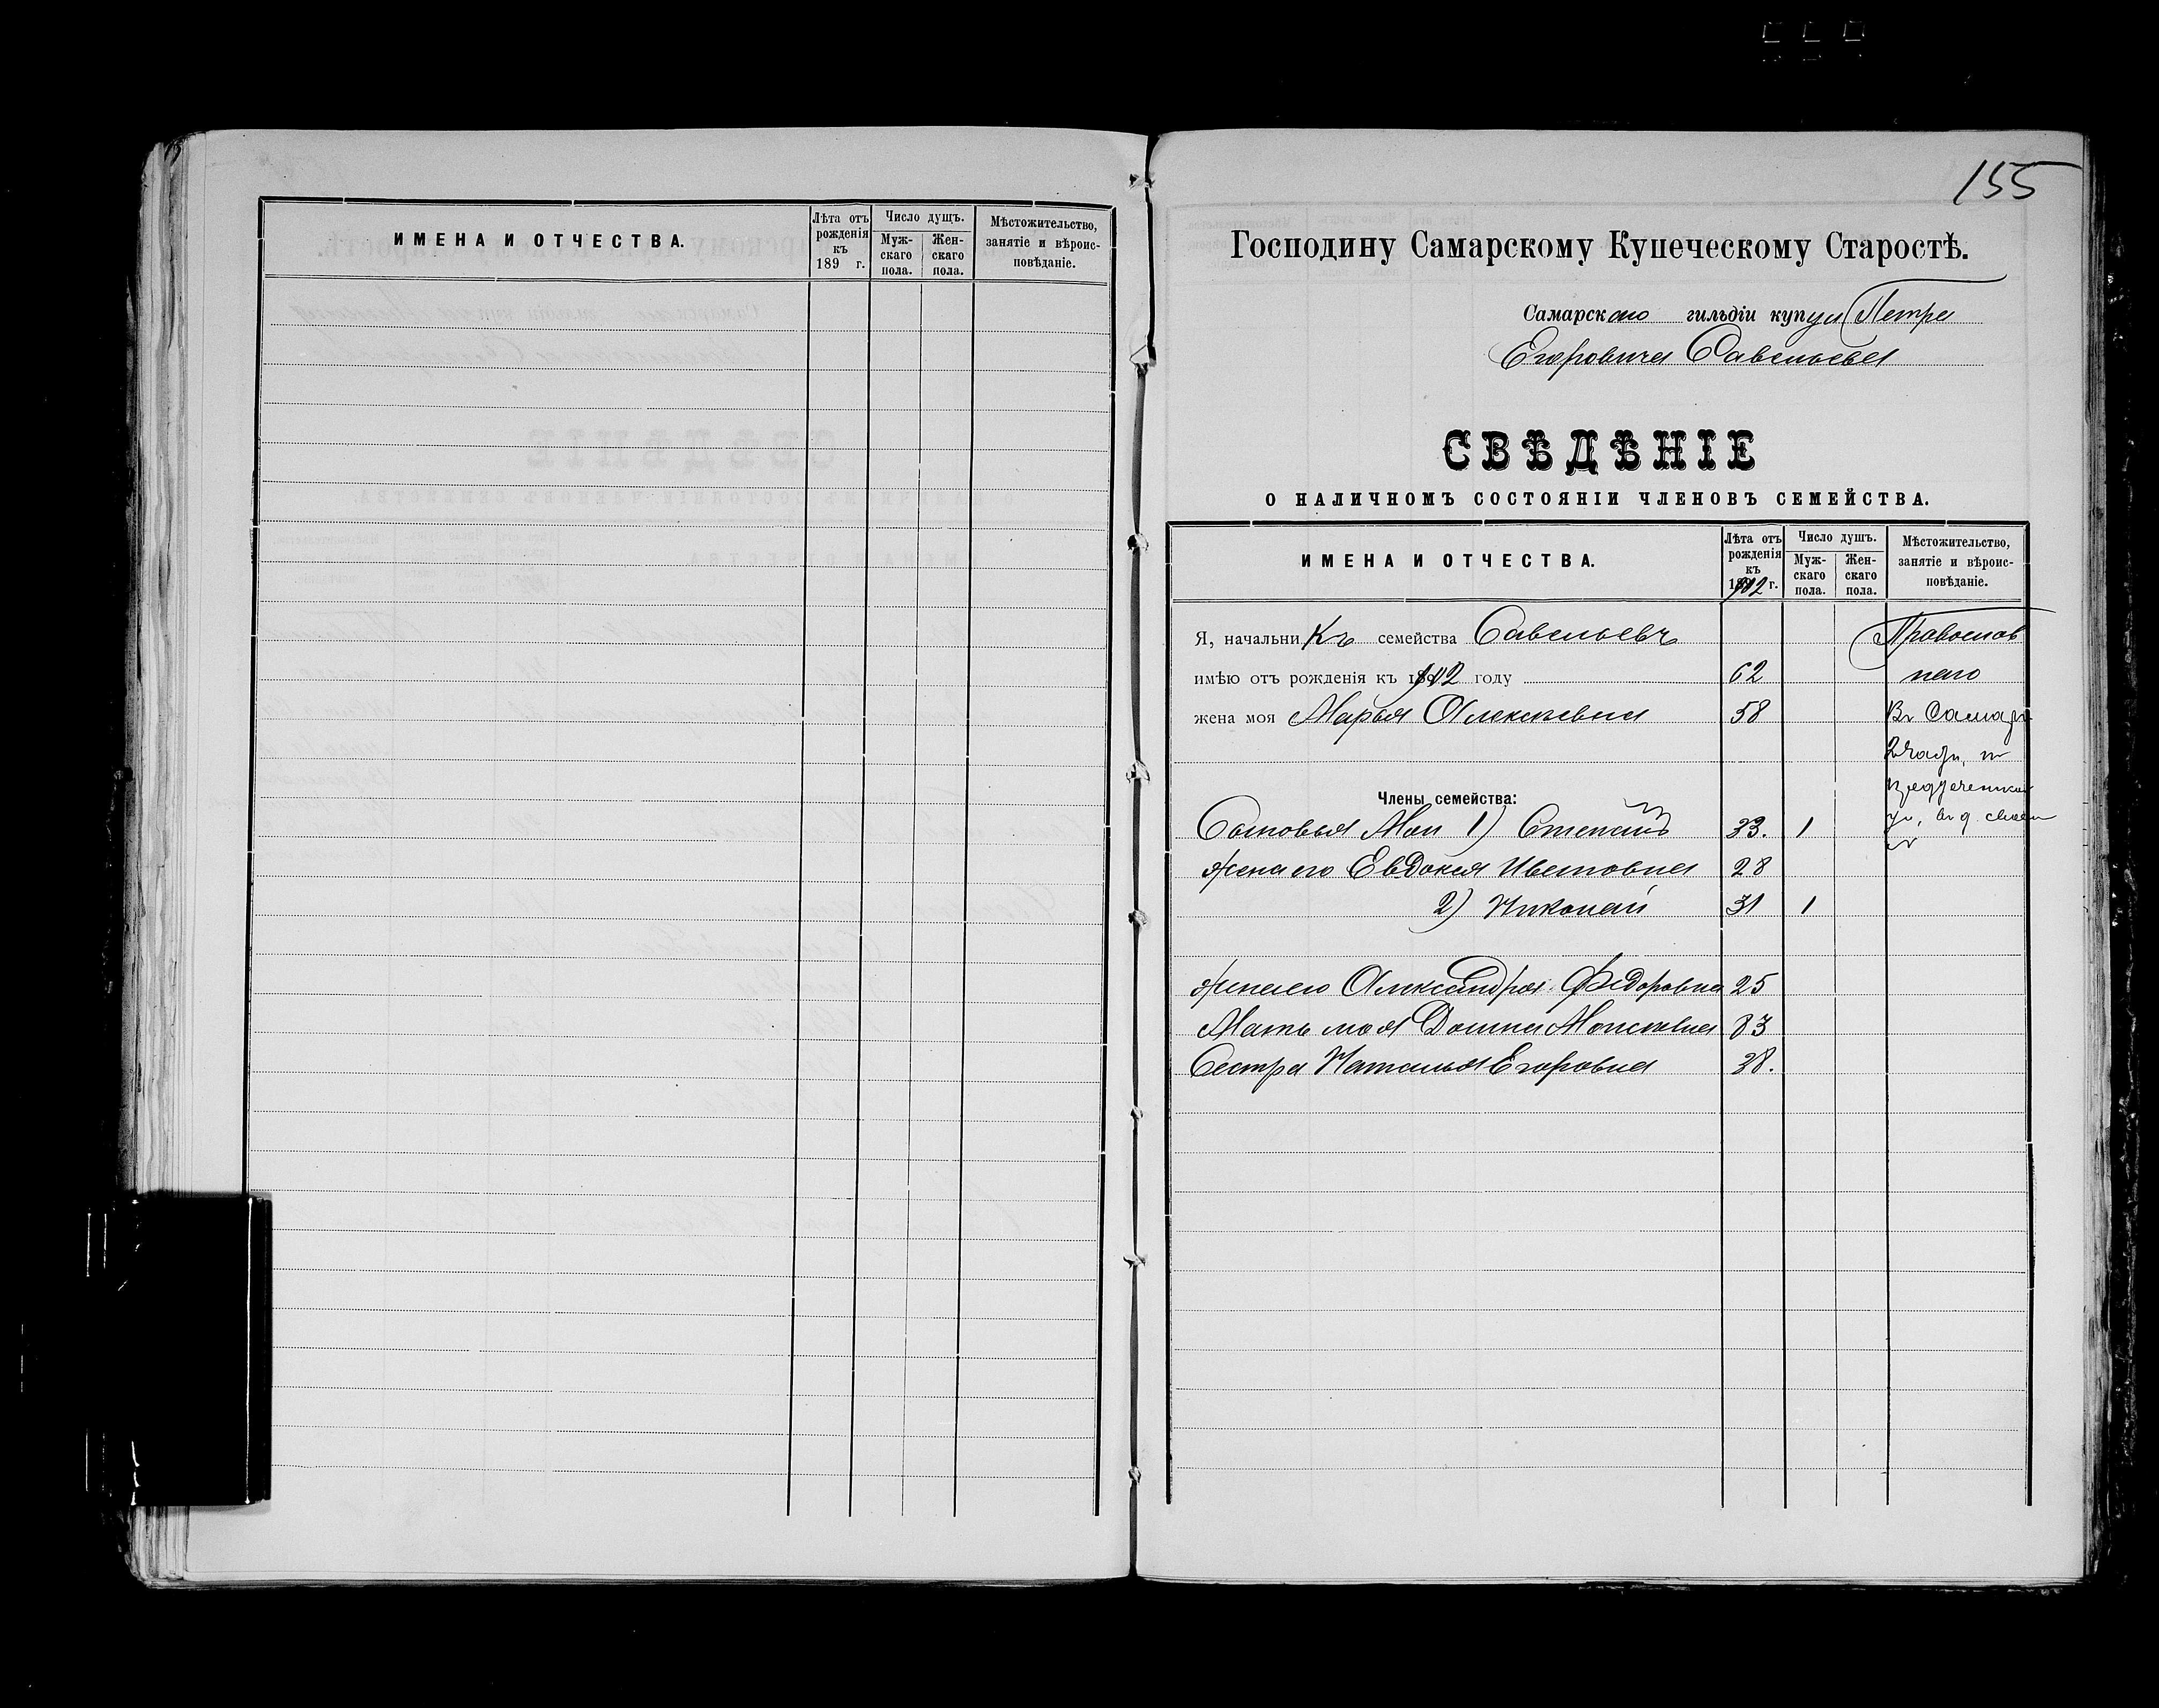 ИМЕНА И ОТЧЕСТВА.
Лѣта отъ рожденія къ 189 г.
Число душъ.
Мужскаго пола.
Женскаго пола.
Мѣстожительство, занятіе и вѣроисповѣданіе.
155
Господину Самарскому Купеческому Старостѣ.
Самарскаго гильдіи купца Петра
Егоровича Савельева
СВѢДѢНІЕ
О НАЛИЧНОМЪ СОСТОЯНІИ ЧЛЕНОВЪ СЕМЕЙСТВА.
ИМЕНА И ОТЧЕСТВА.
Лѣта отъ
рожденія
къ
1902 г.
Число душъ.
Муж-
скаго
пола.
Жен-
скаго
пола.
Мѣстожительство,
занятіе и вѣроис-
повѣданіе.
Я, начальникъ семейства Савельевъ Православ
имѣю отъ рожденія къ 1902 году 62 наго
жена моя Марья Алексѣевна 58 Въ Самарѣ
2 части, по
Члены семейства:
Сыновья Мои 1) Степанъ 33. 1
жена его Евдокія Ивановна 28
2) Николай 31 1
жена его Александра Федоровна 25
Мать моя Домна Моисѣевна 83
Сестра Наталья Егоровна 38.